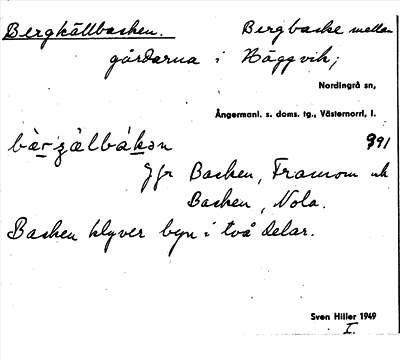 Bergkällbacken. Bergbacke mellan
gårdarna i Häggvik;
Nordingrå sn,
Ångermanl. s. doms. tg., Västernorrl. l.
991
Jfr Backen, Framom och
Backen, Nola.
Backen klyver byn i två delar.
Sven Hiller 1949
I.